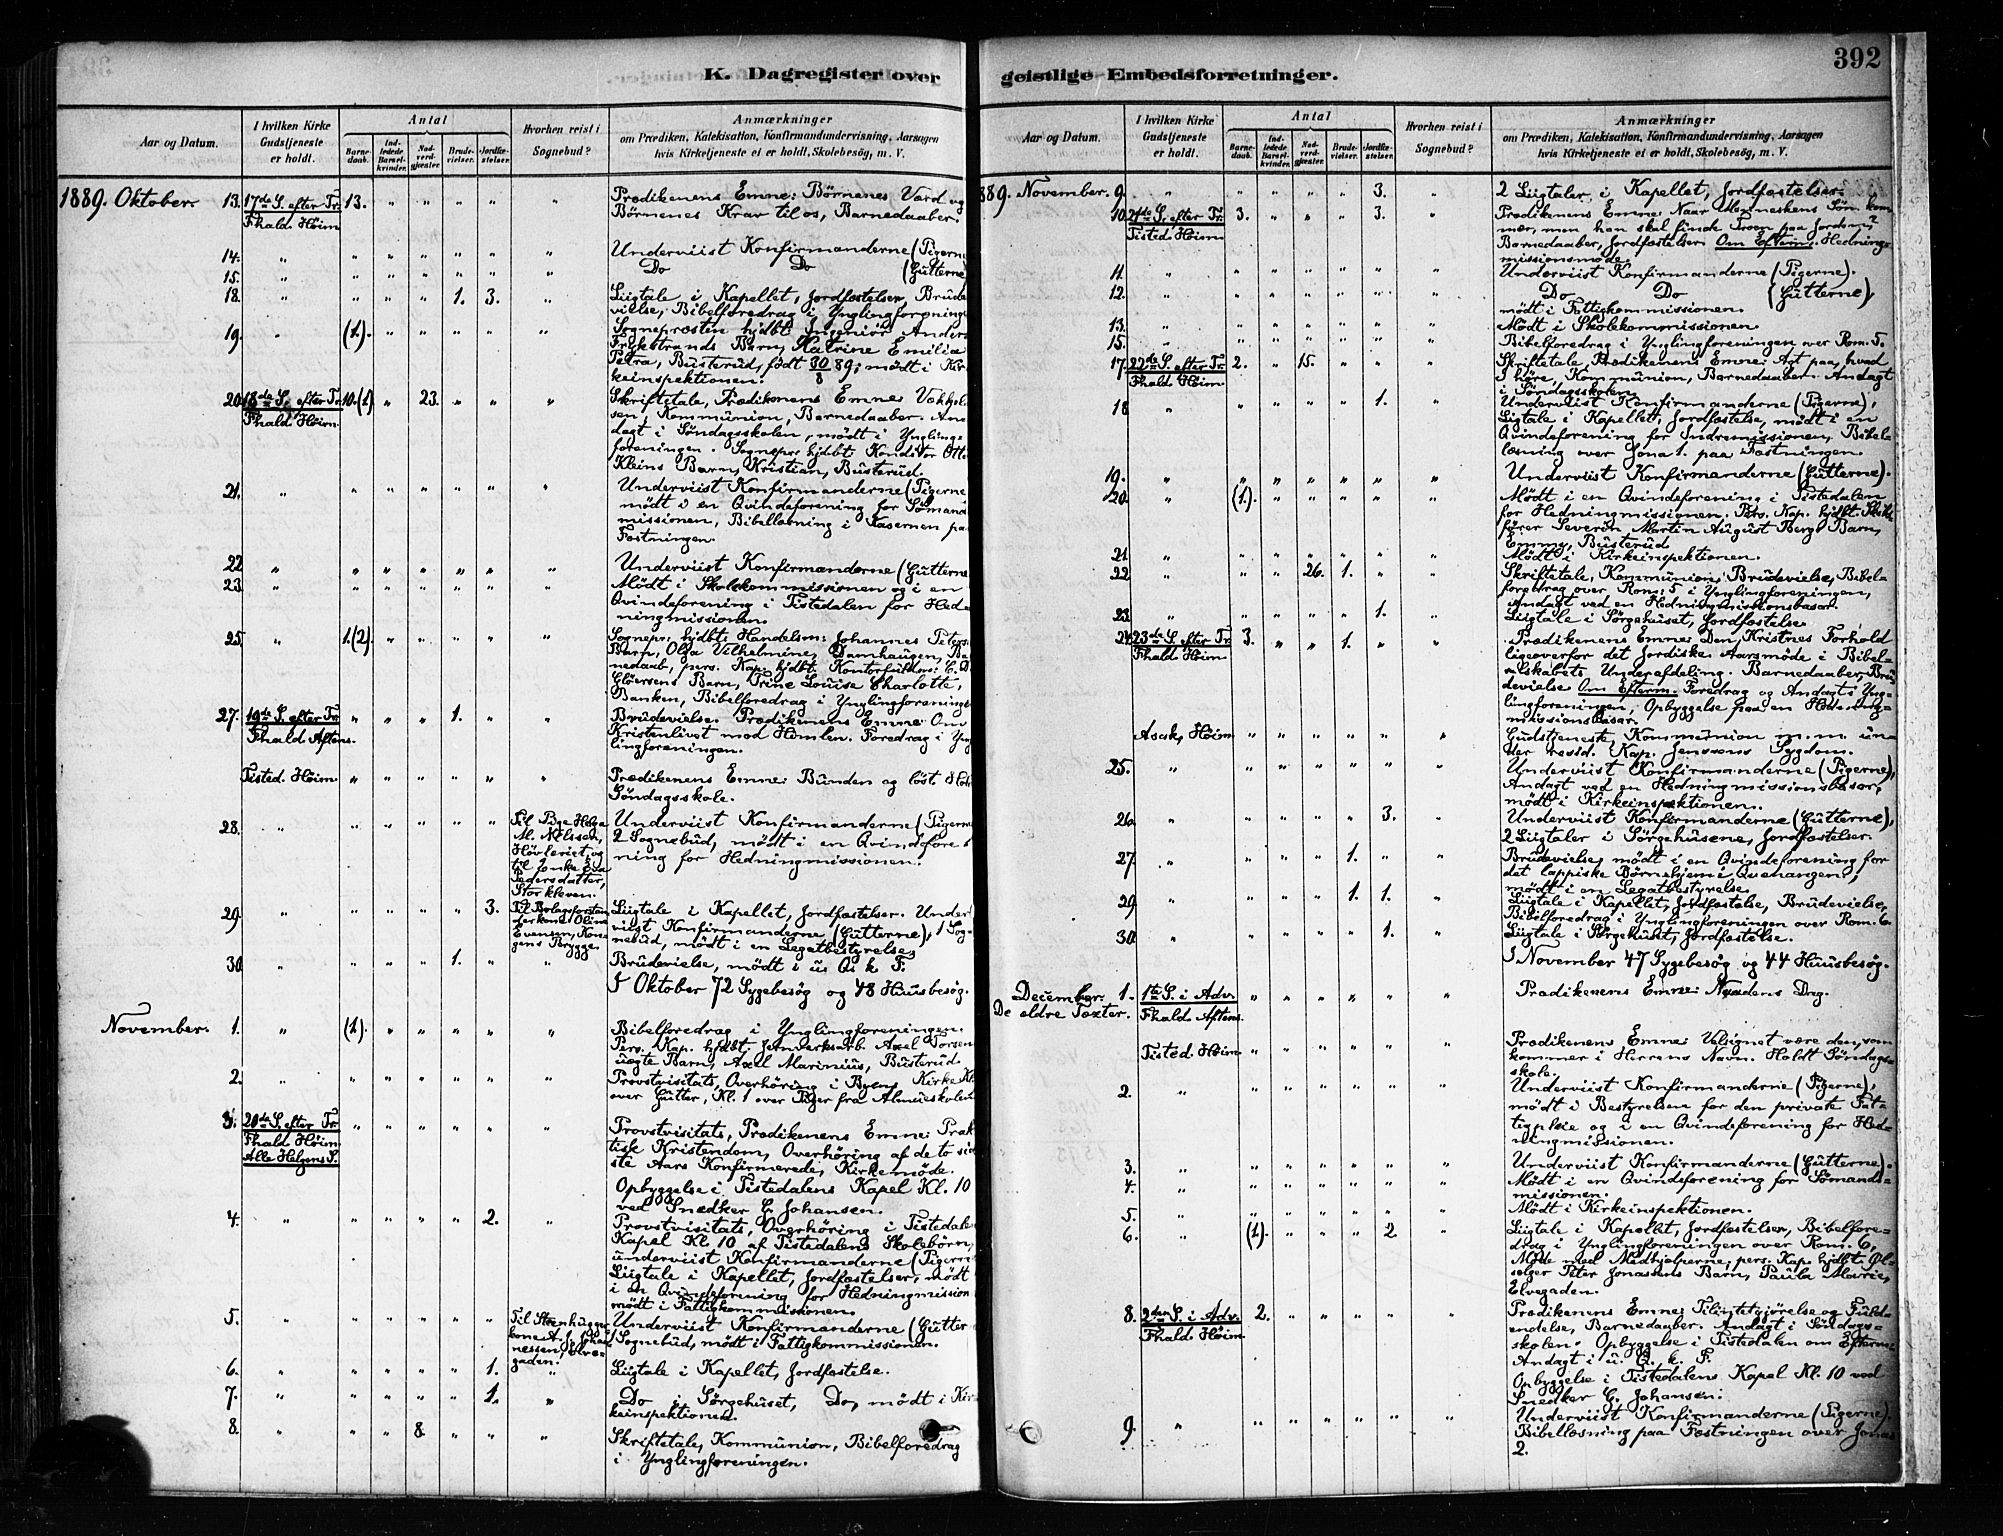 K. Dagregister over
Aar og Datum.
I hvilken Kirke
Gudstjeneste
er holdt.
Antal
Barne-
daab.
Ind-
ledede
Barsel-
kvinder.
Nad-
verd-
gjæster.
Brude-
vielser.
Jordfæ-
stelser.
Hvorhen reist i
Sognebud?
Anmærkninger
om Prædiken, Katekisation, Konfirmandundervisning, Aarsagen
hvis Kirketjeneste ei er holdt, Skolebesög, m. V.
1889. Oktober. 13. 17de S. efter Tr. 13. " " " " " Prædikenens Emne: Börnenes Værd og
Fhald Höim Börnenes Krav til os, Barnedaaber.
14. " " " " " " " Underviist Konfirmanderne (Pigerne
15. " " " " " " " Do Do (Gutterne)
18. " " " " 1. 3. " Liigtale i Kapellet, Jordfæstelser, Brude-
vielse, Bibelforedrag i Ynglingforening
19. " (1). " " " " " Sogneprosten hjdbt. Ingeniör Anders
Barn, Katrine Emilie
Petra, Busterud, födt 30/8 89; mödt i Kir-
keinspektionen.
20. 18de S. efter Tr. 10.(1) " 23. " " " Skriftetale, Prædikenens Emne:
Fhald Höim sen, Kommunion, Barnedaaber. An-
dagt i Söndagsskolen, mödt i Ynglinge-
foreningen. Sognepr. hjdbt. Konditor Otto
Kleins Barn, Kristian, Busterud.
21. " " " " " " " Underviist Konfirmanderne (Pigerne
mödt i en Qvindeforening for Sömands-
missionen, Bibellæsning i Kasernen paa
Fæstningen.
22. " " " " " " " Underviist Konfirmanderne (Gutterne
23. " " " " " " " Mödt i Skolekommissionen og i en
Qvindeforening i Tistedalen for Hed-
ningmissionen.
25. " 1.(2). " " " " " Sognepr. hjdbt. Handelsm: Johannes Peters
Barn, Olga Vilhelmine, Damhaugen, Bar-
nedaab, pers. Kap. hjdbt.
Barn, Trine Louise Charlotte,
Banken, Bibelforedrag i Ynglingforening
27. 19de S. efter Tr. " " " 1. " " Brudevielse. Prædikenens Emne: Om
Fhald Aftens. Kristenlivet mod Himlen. Foredrag i Yng-
lingforeningen.
Tisted. Höim " " " " " " Prædikenens Emne: Bunden og löst
Söndagsskole.
28. " " " " " " Til Pige Helga Underviist Konfirmanderne (Pigerne
M. Nilssen, 2 Sognebud, mödt i en Qvindefore-
Hövleriet, og ning for Hedningmissionen.
til Enke Eva
Pedersdatter,
Storkleven.
29. " " " " " 3. Til Bolagsforstan- Liigtale i Kapellet, Jordfæstelser. Under-
derkone Oline viist Konfirmanderne (Gutterne), 1 Sog-
Evensen, Kon- nebud, mödt i en Legatbestyrelse,
gens Brygge.
30. " " " " 1. " " Brudevielse, mödt i u. Q. k. F.
I Oktober 72 Sygebesög og 48 Huusbesög.
November. 1. " (1). " " " " " Bibelforedrag i Ynglingforeningen.
Pers. Kap. hjdbt. Axel Torsen
uægte Barn, Axel Marinius, Busterud.
2. " " " " " " " Provstvisitats, Overhöring i Byens Kirke Kl.
over Gutter, Kl. 1 over Piger fra Almueskolen
3. 20de S. efter Tr. " " " " " " Provstvisitats, Prædikenens Emne: Prak-
Fhald Höim tisk Kristendom, Overhöring af de to sid-
Alle Helgens S. ste Aars Konfirmerede, Kirkemöde.
Opbyggelse i Tistedalens Kapel Kl. 10
ved Snedker C. Johansen.
4. " " " " " 2. " Provstvisitats, Overhöring i Tistedale
Kapel Kl. 10 af Tistedalens Skolebörn,
underviist Konfirmanderne (Pigerne
Liigtale i Kapellet, Jordfæstelser, mödt
i en Qvindeforening for Hedningmission
mödt i Fattigkommissionen.
5. " " " " " " Til Steenhugger- Underviist Konfirmanderne (Gutter
kone A. J. Johan- 1 Sognebud, mödt i Fattigkommissionen.
nessen, Elve-
gaden.
6. " " " " " 1. " Liigtale i Kapellet, Jordfæstelse.
7. " " " " " 1. " Do i Sörgehuset, Do, mödt i Kir-
keinspektionen.
8. " " " 8. " " " Skriftetale, Kommunion, Bibelforedrag
i Ynglingforeningen.
392
geistlige Embedsforretninger.
Aar og Datum.
I hvilken Kirke
Gudstjeneste
er holdt.
Antal
Barne-
daab.
Ind-
ledede
Barsel-
kvinder.
Nad-
verd-
gjæster.
Brude-
vielser.
Jordfæ-
stelser.
Hvorhen reist i
Sognebud?
Anmærkninger
om Prædiken, Katekisation, Konfirmandundervisning, Aarsagen
hvis Kirketjeneste ei er holdt, Skolebesög, m. V.
889. November. 9. " " " " " 3. " 2 Liigtaler i Kapellet, Jordfæstelser.
10. 21de S. efter Tr. 3. " " " 3. " Prædikenens Emne: Naar Menneskens Sön kom-
Tisted. Höim mer, mon han skal finde Troen paa Jorden?
Barnedaaber, Jordfæstelser. Om Efterm. Hednings-
missionsmöde.
11. " " " " " " " Underviist Konfirmanderne (Pigerne).
12. " " " " " " " Do Do (Gutterne),
mödt i Fattigkommissionen.
13. " " " " " " " Mödt i Skolekommissionen.
15. " " " " " " " Bibelforedrag i Ynglingforeningen over Rom. 5.
17. 22de S. efter Tr. 2. " 15. " " " Skriftetale Prædikenens Emne: Agt paa, hvad
Fhald Höim I höre, Kommunion, Barnedaaber. Andagt
i Söndagsskolen.
18. " " " " " 1. " Underviist Konfirmanderne (Pigerne),
Liigtale i Kapellet, Jordfæstelse, mödt i en
Qvindeforening for Indremissionen, Bibel-
læsning over Jona 1. paa Fæstningen.
19. " " " " " " " Underviist Konfirmanderne (Gutterne).
20. " (1). " " " " " Mödt i en Qvindeforening i Tistedalen
for Hedningmissionen. Pers. Kap. hjdbt. Skibs-
förer Severin Martin August Bergs Barn,
Emmy, Busterud.
21. " " " " " " " Mödt i Kirkeinspektionen.
22. " " " 26. 1. " " Skriftetale, Kommunion, Brudevielse, Bibel-
foredrag over Rom: 5 i Ynglingforeningen,
Andagt ved en Hedningmissionsbasar.
23. " " " " " 1. " Liigtale i Sörgehuset, Jordfæstelse
24. 23de S. efter Tr. 3. " " 1. " " Prædikenens Emne: Den Kristnes Forhold
Fhald Höim ligeoverfor det Jordiske. Aarsmöde i Bibel-
selskabets Underafdeling. Barnedaaber, Bru-
devielse Om Efterm. Foredrag og Andagt i Yng-
lingforeningen, Opbyggelse paa en Hedning-
missionsbasar.
Asak, Höim " " " " " " Gudstjeneste, Kommunion m. m. un-
der resid. Kap. Jenssens Sygdom.
25. " " " " " " " Underviist Konfirmanderne (Pigerne),
Andagt ved en Hedningmissionsbasar,
mödt i Kirkeinspektionen.
26. " " " " " 3. " Underviist Konfirmanderne (Gutterne),
2 Liigtaler i Sörgehusene, Jordfæstelser.
27. " " " " 1. " " Brudevielse, mödt i en Qvindeforening for
det lappiske Börnehjem i Quænangen,
mödt i en Legatbestyrelse.
29. " " " " 1. 1. " Liigtale i Kapellet, Jordfæstelse, Brudevielse,
Bibelforedrag i Ynglingforeningen over Rom. 6.
30. " " " " " 1. " Liigtale i Sörgehuset, Jordfæstelse.
I November 47 Sygebesög og 44 Huusbesög.
December. 1. 1ste S. i Adv. " " " " " " Prædikenens Emne: Naadens Dag.
De ældre Texter. Fhald Aftens.
Tisted. Höim " " " " " " Prædikenens Emne: Velsignet være den, som
kommer i Herrens Navn. Holdt Söndags-
skole.
2. " " " " " " " Underviist Konfirmanderne (Pigerne),
mödt i Bestyrelsen for den private Fat-
tigpleie og i en Qvindeforening for Hed-
ningmissionen.
3. " " " " " " " Underviist Konfirmanderne (Gutterne).
4. " " " " " " " Mödt i en Qvindeforening for Sömands-
missionen.
5. " " " " " " " Mödt i Kirkeinspektionen.
6. " (1). " " " 2. " Liigtale i Kapellet, Jordfæstelser, Bibelfore-
drag i Ynglingforeningen over Rom. 6,
Möde med Medhjælperne; pers. Kap. hjdbt. Øl-
sælger Peter Jonassens Barn, Paula Marie,
Elvegaden.
8. 2den S. i Adv. 2. " " " " " Prædikenens Emne: Tilintetgjörelse og Fuld-
Fhald Höim endelse, Barnedaaber. Andagt i Söndags-
skolen. Opbyggelse i Tistedalen om Efterm.
Andagt i u. Q. k. F.
Opbyggelse i Tistedalens Kapel Kl. 10 ved
Snedker C. Johansen.
9. " " " " " " " Underviist Konfirmanderne (Pigerne).
Bibellæsning paa Fæstningen over Jonas
2.